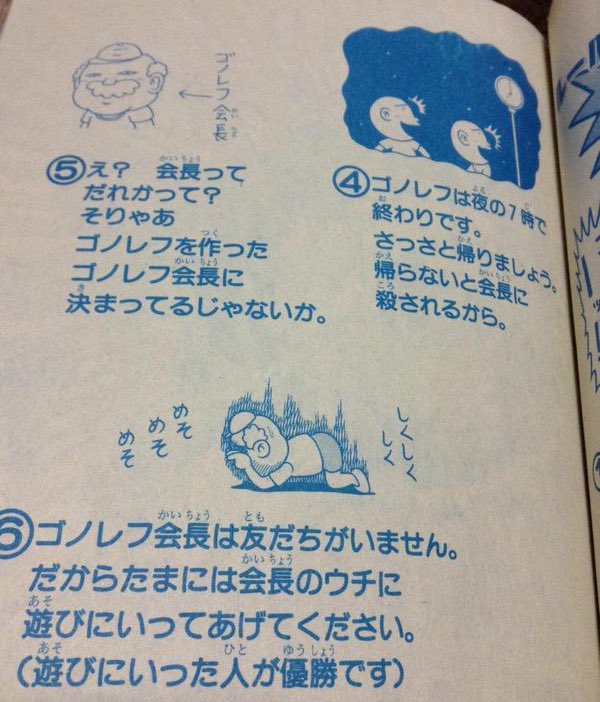 ④ゴノレフは夜の7時で
終わりです。
さっさと帰りましょう。
帰らないと会長に
殺されるから。
ゴノレフ会長
⑤え?会長って
だれかって?
そりゃあ
ゴノレフを作った
ゴノレフ会長に
決まってるじゃないか。
しくしく
しく
めそ
めそ
めそ
⑥ゴノレフ会長は友だちがいません。
だからたまには会長のウチに
遊びにいってあげてください。
(遊びにいった人が優勝です)